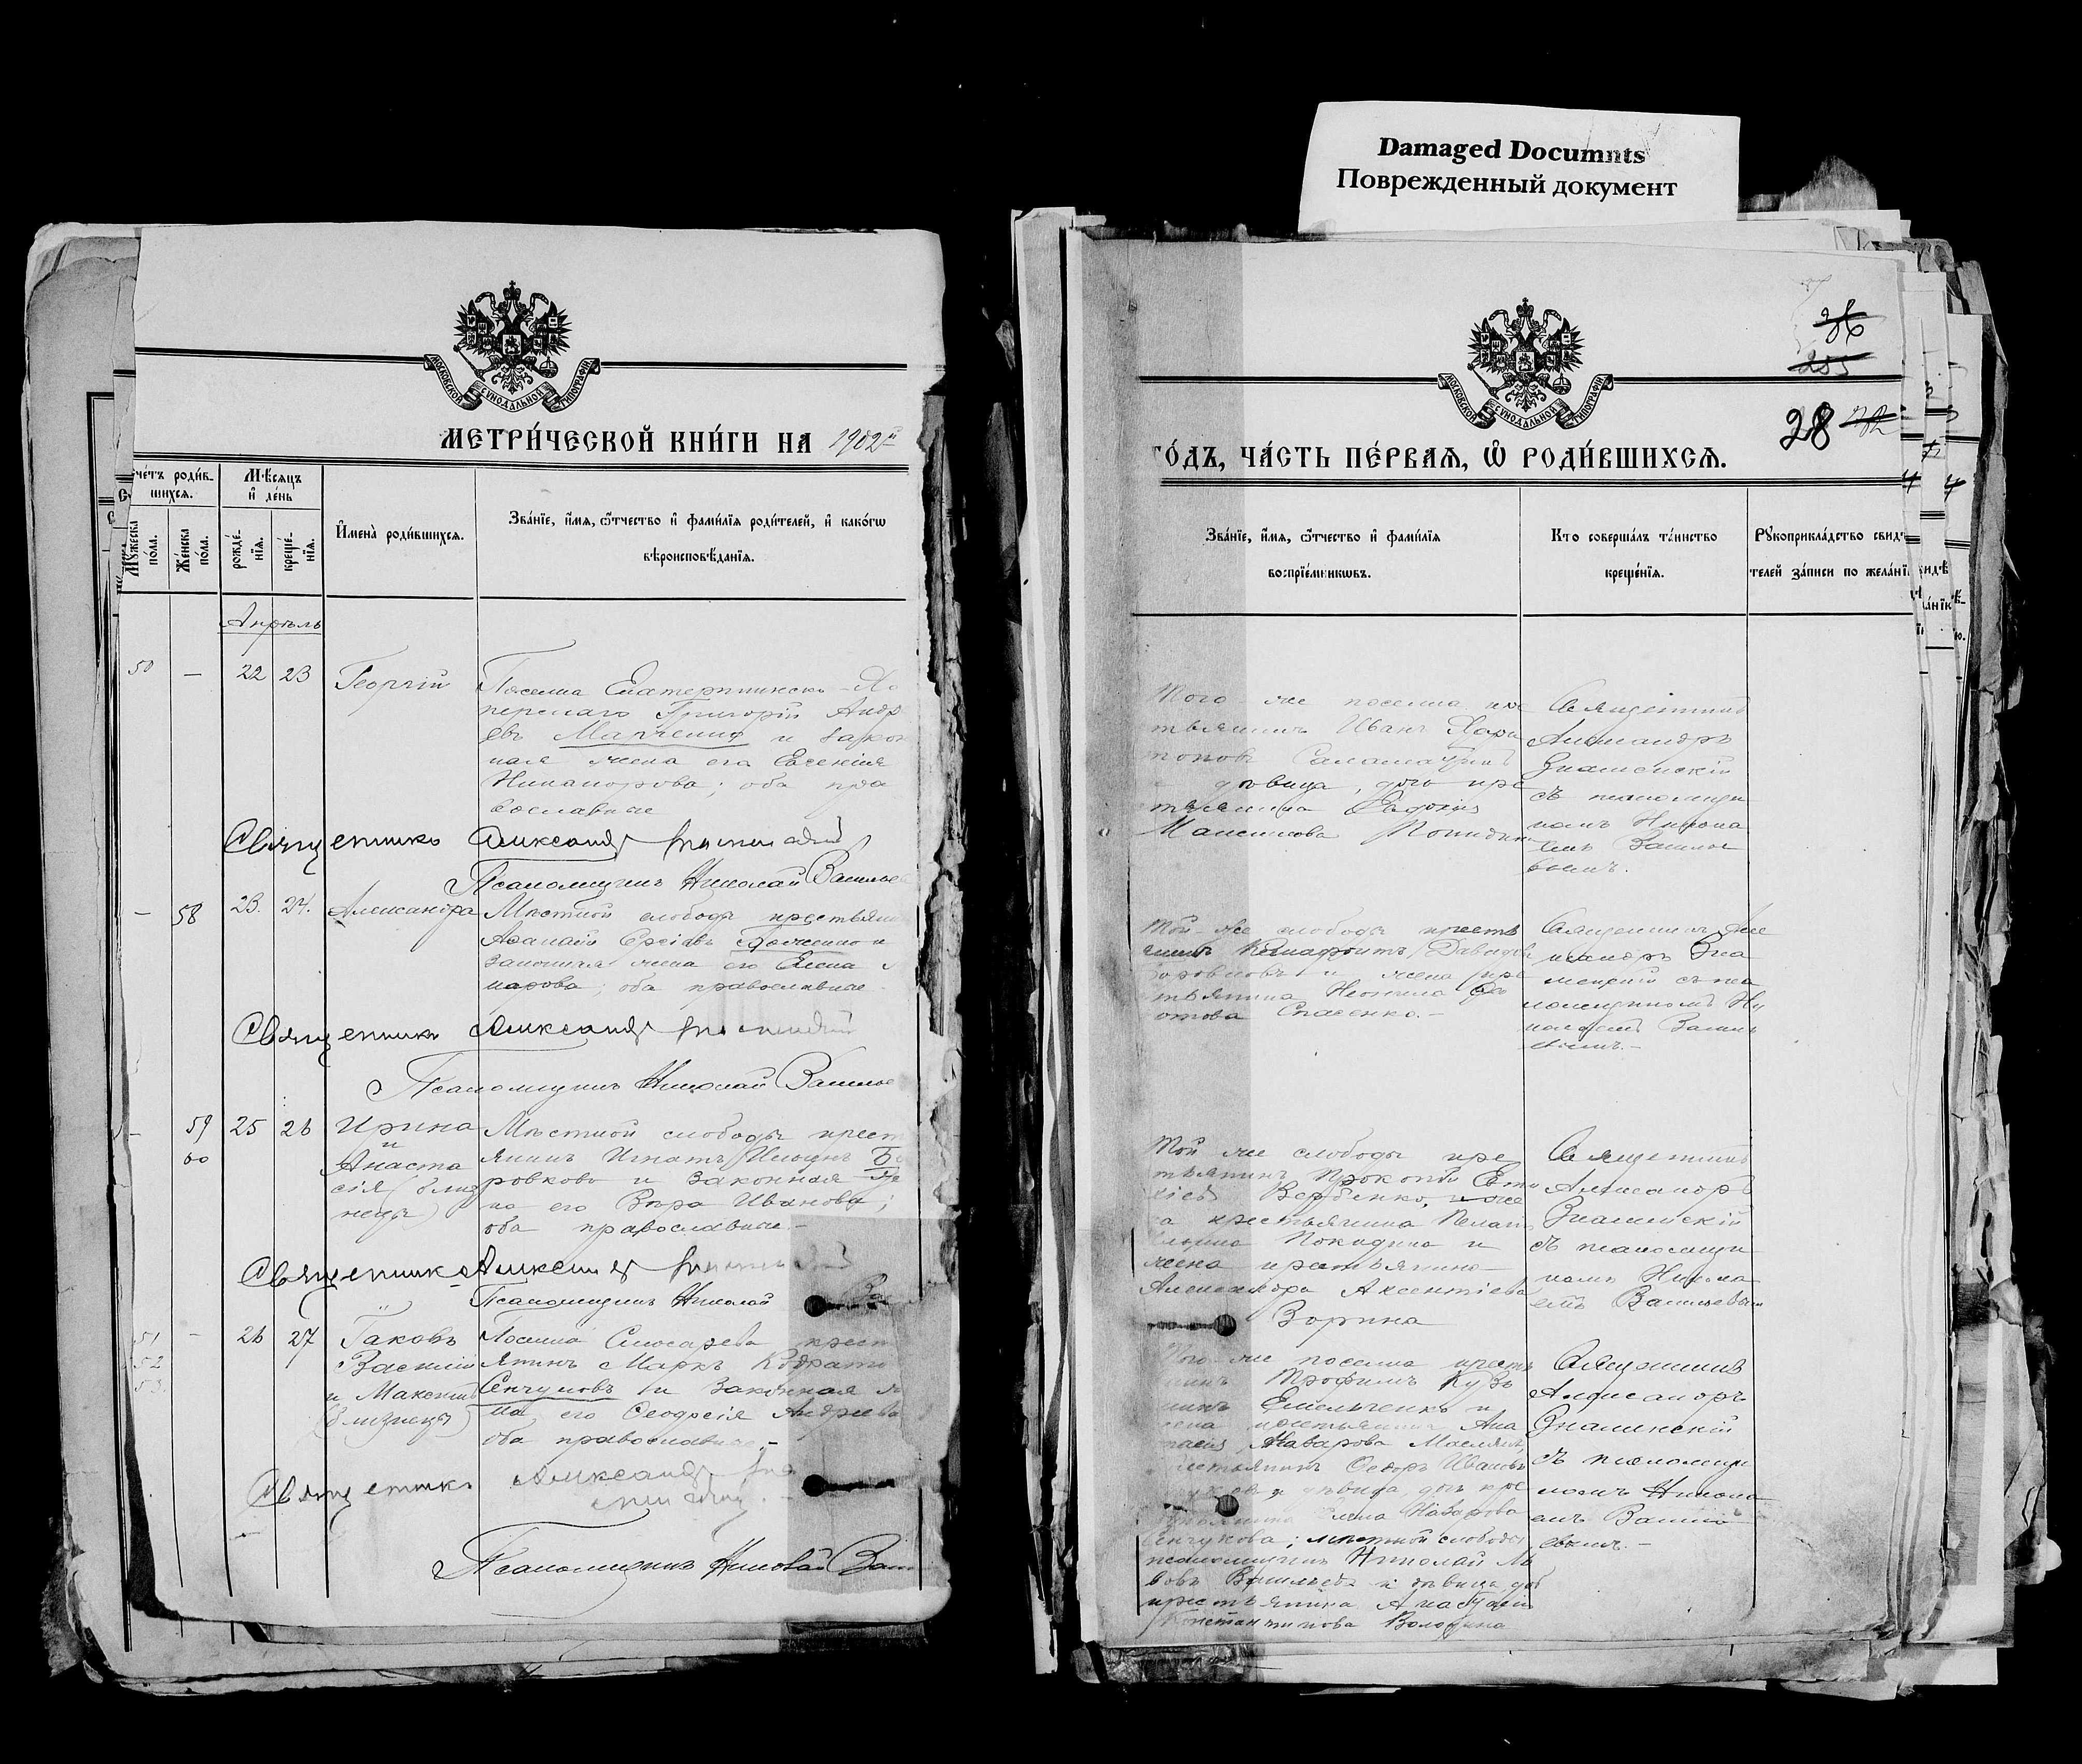 Damaged Documnts
Поврежденный документ
МОСКОВСКОЙ СѴНОДАЛЬНОЙ ТИПОГРАФІИ
МЕТРИ́ЧЕСКОЙ КНИ́ГИ НА 1902
че́тъ роди́в-
шихся.
Мѣсяцъ
и де́нь
Му́жеска
по́ла.
Же́нска
по́ла.
рожде́-
нїя.
креще́-
нїя.
И҆мена̀ роди́вшихся.
Зва́нїе, и҆́мя, ѻ҆́тчество и҆ фами́лїя роди́телей, и҆ како́гѡ
вѣроисповѣ́данїя.
Апрѣль
50 — 22 23 Георгій
Поселка Екатерининско-Хо
перскаго Григорій Андр
евъ и закон
ная жена его Евгенія
Никанорова; оба пра
вославные
Священникъ Александръ Знаменскій
Псаломщикъ Николай Василье
— 58 23. 24. Александра
Мѣстной слободы крестьянин
Законная жена его Елена
оба православные
Священникъ Александръ Знаменскій
Псаломщикъ Николай Василье
59 25 26 Ирина
60 и
Анаста
сія (близ
нецы)
Мѣстной слободы крест
янинъ Игнатъ Ильинъ Бо
ровковъ и законная же
на его Вѣра Иванова;
оба православные.-
Священникъ Александръ Знаменскій
Псаломщикъ Николай Вас
51 - 26 27 Іаковъ
52 Василій
53. и Максимъ
(близнецы)
Поселка Слюсарева крест
янинъ Маркъ
Сенчуковъ и законная ж
на его Ѳеодосія Андреева
оба православные.-
Священникъ Александръ Зна
менскій.-
Псаломщикъ Николай Васи
МОСКОВСКОЙ СѴНОДАЛЬНОЙ ТИПОГРАФІИ
255
28
ГО́ДЪ, ЧА́СТЬ ПЕ́РВАЯ, Ѡ҆ РОДИ́ВШИХСЯ.
Зва́нїе, и҆́мя, ѻ҆́тчество и҆ фами́лїя
воспрїе́мникѡвъ.
Кто соверша́лъ та́инство
креще́нїя.
Рꙋкоприкла́дство свидѣ́
телей за́писи по жела́нїю
Того же поселка кре
стьянинъ Иванъ Хари
тоновъ
дѣвица, дочь кре
стьянина Евдокія
Максимова
Священникъ
Александръ
Знаменскій
съ псаломщи
комъ Никола
емъ Василье
вымъ.
Той-же слободы кресть
янинъ Давидовъ
и жена кре
стьянина
Спасенко.-
Священникъ Але
ксандръ Зна
менскій съ пса
ломщикомъ Ни
колаемъ Василь
евымъ.-
Той же слободы кре
стьянинъ Прокопій Евти
хіевъ Вербенко, и же
на крестьянина Пелагія
Покидина и
жена крестьянина
Александра Аксентіева
Зорина
Священникъ
Александръ
Знаменскій
съ псаломщи
комъ Никола
емъ Васильевым
Того-же поселка кресть
янинъ Трофимъ Кузь
минъ Емельченко и
жена крестьянина Ана
стасія Назарова
крестьянинъ Ѳедоръ Ивановъ
дѣвица, дочь кре
стьянина Елена Назарова
Сенчукова; мѣстной слободы
псаломщикъ Николай Ль
вовъ Васильевъ и дѣвица, доч
крестьянина Анастасія
Константинова Володина
Священникъ
Александръ
Знаменскій
съ псаломщи
комъ Никола
емъ Василь
евымъ.-